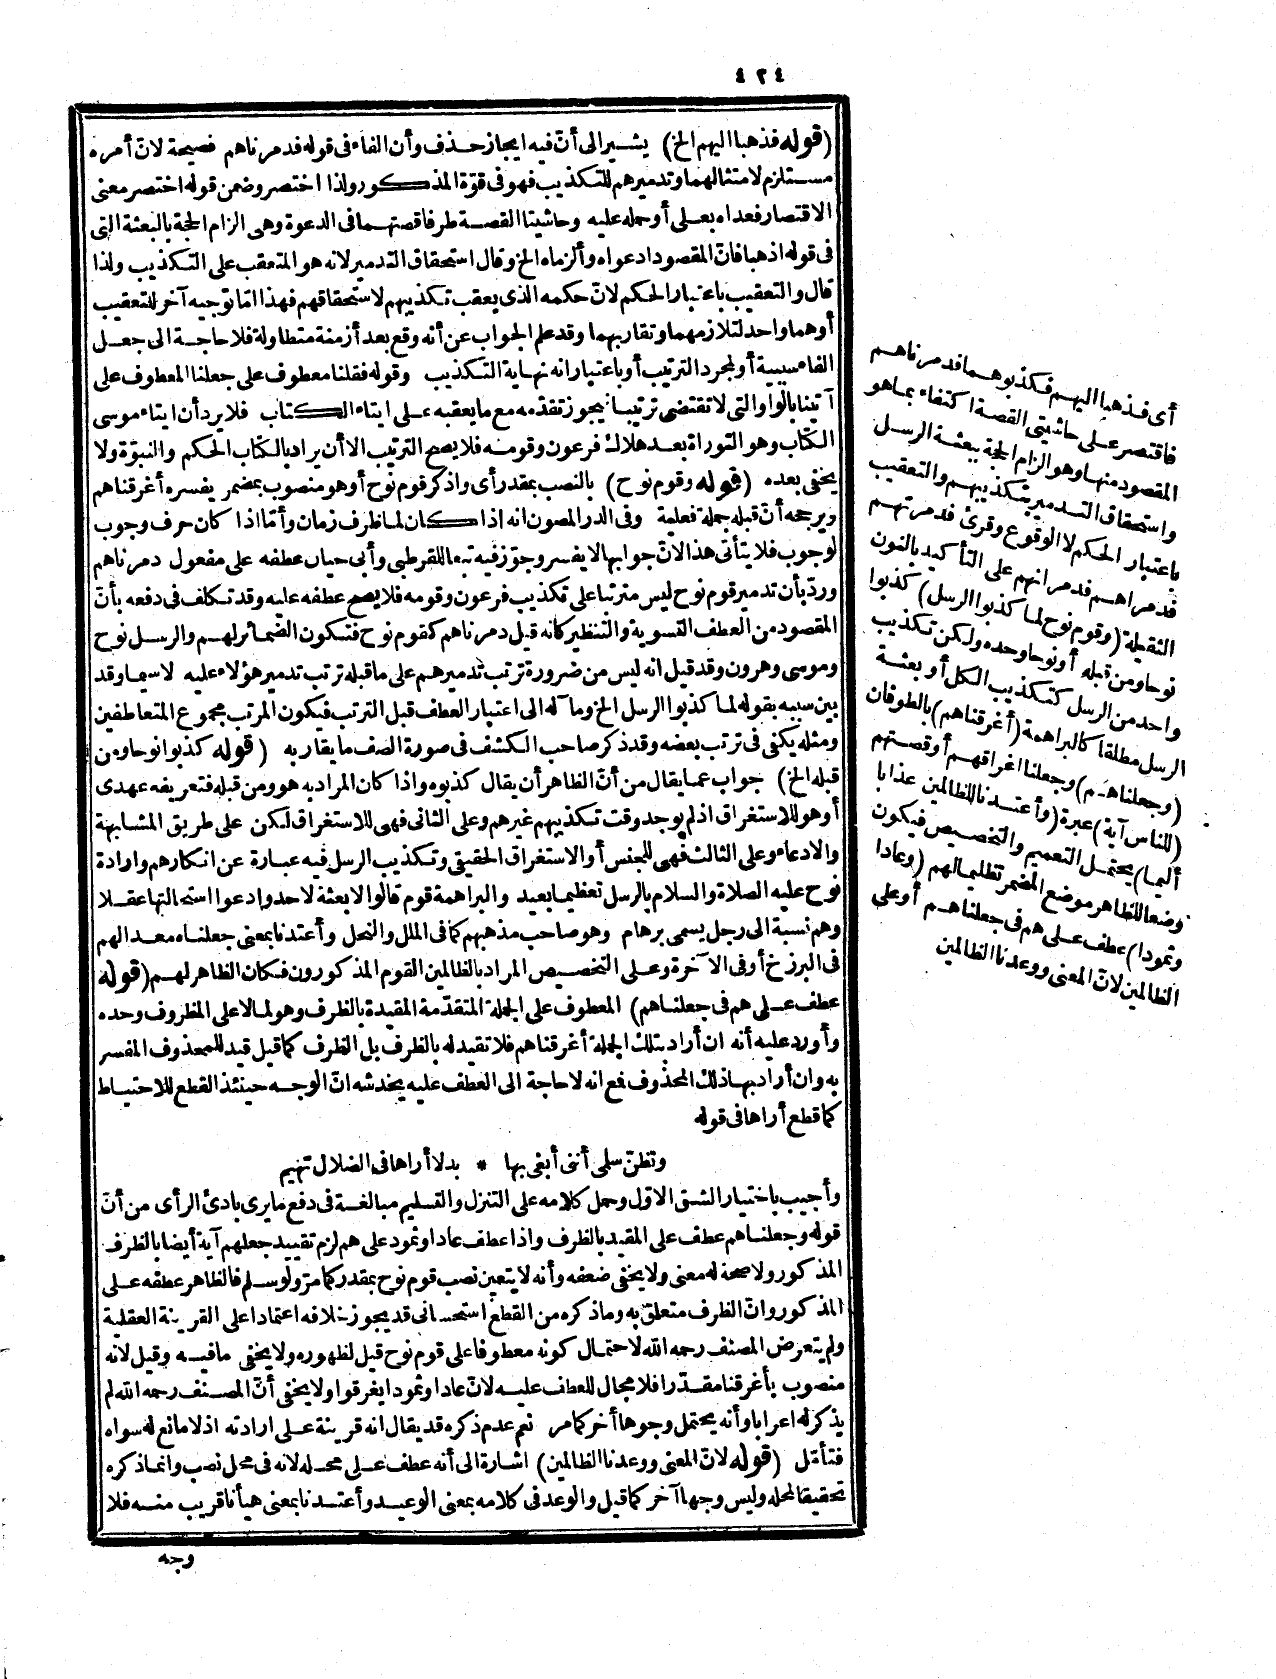 ٤٢٤
(قوله فذهبا اليهم الخ) يشير الى أنّ فيه ايجاز حذف وأن الفاء فى قوله فدمرناهم فصيحة لانّ أمره
مستلزم لامتثالهما وتدميرهم للتكذيب فهو فى قوّة المذكور ولذا اختصر وضمن قوله اختصر معنى
الاقتصار فعداه بعلى أو حمله عليه وحاشيتا القصة طرفا قصتهما فى الدعوة وهى الزام الحجة بالبعثة التى
فى قوله اذهبا فانّ المقصود ادعواه وألزماه الخ وقال استحقاق التدمير لانه هو المتعقب على التكذيب ولذا
قال والتعقيب باعتبار الحكم لانّ حكمه الذى يعقب تكذيبهم لاستحقاقهم فهذا امّا توجيه آخر للتعقيب
أو هما واحد لتلازمهما وتقاربهما وقد علم الجواب عن أنه وقع بعد أزمنة متطاولة فلا حاجة الى جعل
الفاء سببية أو لمجرد الترتيب أو باعتبار انه نهاية التكذيب وقوله فقلنا معطوف على جعلنا المعطوف على
آتينا بالواو التى لا تقتضى ترتيبا فيجوز تقدّمه مع ما يعقبه على ايتاء الكتاب فلا يرد أن ايتاء موسى
الكتاب وهو التوراة بعد هلاك فرعون وقومه فلا يصح الترتيب الا أن يراد بالكتاب الحكم والنبوّة ولا
يخفى بعده (قوله وقوم نوح) بالنصب بمقدر أى واذكر قوم نوح أو هو منصوب بمضمر يفسره أغرقناهم
ويرجحه أنّ قبله جملة فعلية وفى الدر المصون انه اذا كان لما ظرف زمان وأمّا اذا كان حرف وجوب
لوجوب فلا يتأتى هذا لانّ جوابها لا يفسر وجوّز فيه تبعا للقرطبى وأبى حيان عطفه على مفعول دمرناهم
وردّ بأن تدمير قوم نوح ليس مترتبا على تكذيب فرعون وقومه فلا يصح عطفه عليه وقد تكلف فى دفعه بأنّ
المقصود من العطف التسوية والتنظير كأنه قيل دمرناهم كقوم نوح فتكون الضمائر لهم والرسل نوح
وموسى وهرون وقد قيل انه ليس من ضرورة ترتب تدميرهم على ما قبله ترتب تدمير هؤلاء عليه لاسيما وقد
بين سببه بقوله لما كذبوا الرسل الخ وما آله الى اعتبار العطف قبل الترتب فيكون المرتب مجموع المتعاطفين
ومثله يكفى فى ترتب بعضه وقد ذكر صاحب الكشف فى صورة الصف ما يقاربه (قوله كذبوا نوحا ومن
قبله الخ) جواب عما يقال من أنّ الظاهر أن يقال كذبوه واذا كان المراد به هو ومن قبله فتعريفه عهدى
أو هو للاستغراق اذ لم يوجد وقت تكذيبهم غيرهم وعلى الثانى فهى للاستغراق لكن على طريق المشابهة
والادعاء وعلى الثالث فهى للجنس أو الاستغراق الحقيقى وتكذيب الرسل فيه عبارة عن انكارهم وارادة
نوح عليه الصلاة والسلام بالرسل تعظيما بعيد والبراهمة قوم قالوا لا بعثة لاحد وادعوا استحالتها عقلا
وهم نسبة الى رجل يسمى برهام وهو صاحب مذهبهم كما فى الملل والنحل وأعتدنا بمعنى جعلناه معدا لهم
فى البرزخ أو فى الآخرة وعلى التخصيص المراد بالظالمين القوم المذكورون فكان الظاهر لهم (قوله
عطف على هم فى جعلناهم) المعطوف على الجملة المتقدّمة المقيدة بالظرف وهو لما لا على المظروف وحده
وأورد عليه أنه ان أراد بتلك الجملة أغرقناهم فلا تقيد له بالظرف بل الظرف كما قيل قيد للمحذوف المفسر
به وان أراد بها ذلك المحذوف فمع انه لا حاجة الى العطف عليه يخدشه انّ الوجه حينئذ القطع للاحتياط
كما قطع أراها فى قوله
وتظنّ سلمى أننى أبغى بها * بدلا أراها فى الضلال تهيم
وأجيب باختيار الشق الاوّل وحمل كلامه على التنزل والتسليم مبالغة فى دفع ما يرى بادئ الرأى من أنّ
قوله وجعلناهم عطف على المقيد بالظرف واذا عطف عادا وثمود على هم لزم تقييد جعلهم آية أيضا بالظرف
المذكور ولا صحة له معنى ولا يخفى ضعفه وأنه لا يتعين نصب قوم نوح بمقدر كما مرّ ولو سلم فالظاهر عطفه على
المذكور وانّ الظرف متعلق به وما ذكره من القطع استحسانى قد يجوز خلافه اعتمادا على القرينة العقلية
ولم يتعرض المصنف رحمه الله لاحتمال كونه معطوفا على قوم نوح قيل لظهوره ولا يخفى ما فيه وقيل لانه
منصوب بأغرقنا مقدّرا فلا مجال للعطف عليه لانّ عادا وثمود ا يغرقوا ولا يخفى أنّ المصنف رحمه الله لم
يذكر له اعرابا وأنه يحتمل وجوها أخر كما مر نعم عدم ذكره قد يقال انه قرينة على ارادته اذ لا مانع له سواه
فتأمّل (قوله لانّ المعنى ووعدنا الظالمين) اشارة الى أنه عطف على محله لانه فى محل نصب وانما ذكره
تحقيقا لمحله وليس وجها آخر كما قيل والوعد فى كلامه بمعنى الوعيد وأعتدنا بمعنى هيأنا قريب منه فلا
وجه
أى فذهبا اليهم فكذبوهما فدمرناهم
فاقتصر على حاشيتى القصة اكتفاء بما هو
المقصود منها وهو الزام الحجة ببعثة الرسل
واستحقاق التدمير بتكذيبهم والتعقيب
باعتبار الحكم لا الوقوع وقرئ فدمرتهم
فدمراهم فدمرانهم على التأكيد بالنون
الثقيلة (وقوم نوح لما كذبوا الرسل) كذبوا
نوحا ومن قبله أو نوحا وحده ولكن تكذيب
واحد من الرسل كتكذيب الكل أو بعثة
الرسل مطلقا كالبراهمة (أغرقناهم) بالطوفان
(وجعلناهم) وجعلنا اغراقهم أو قصتهم
(للناس آية) عبرة (وأعتدنا للظالمين عذابا
أليما) يحتمل التعميم والتخصيص فيكون
وضعا للظاهر موضع المضمر تظليما لهم (وعادا
وثمودا) عطف على هم فى جعلناهم أو على
الظالمين لانّ المعنى ووعدنا الظالمين